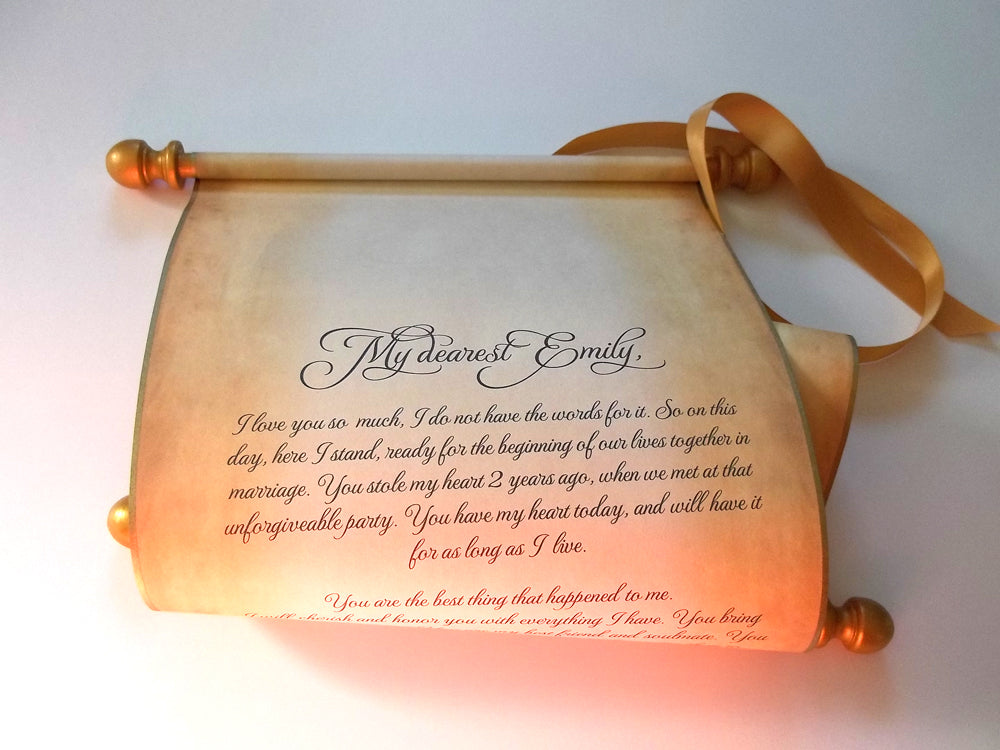 My dearest Emily,
I love you so much, I do not have the words for it. So on this
day, here I stand, ready for the beginning of our lives together in
marriage. You stole my heart 2 years ago, when we met at that
unforgiveable party. You have my heart today, and will have it
for as long as I live.
You are the best thing that happened to me.
I will cherish and honor you with everything I have. You bring
my best friend and soulmate. You